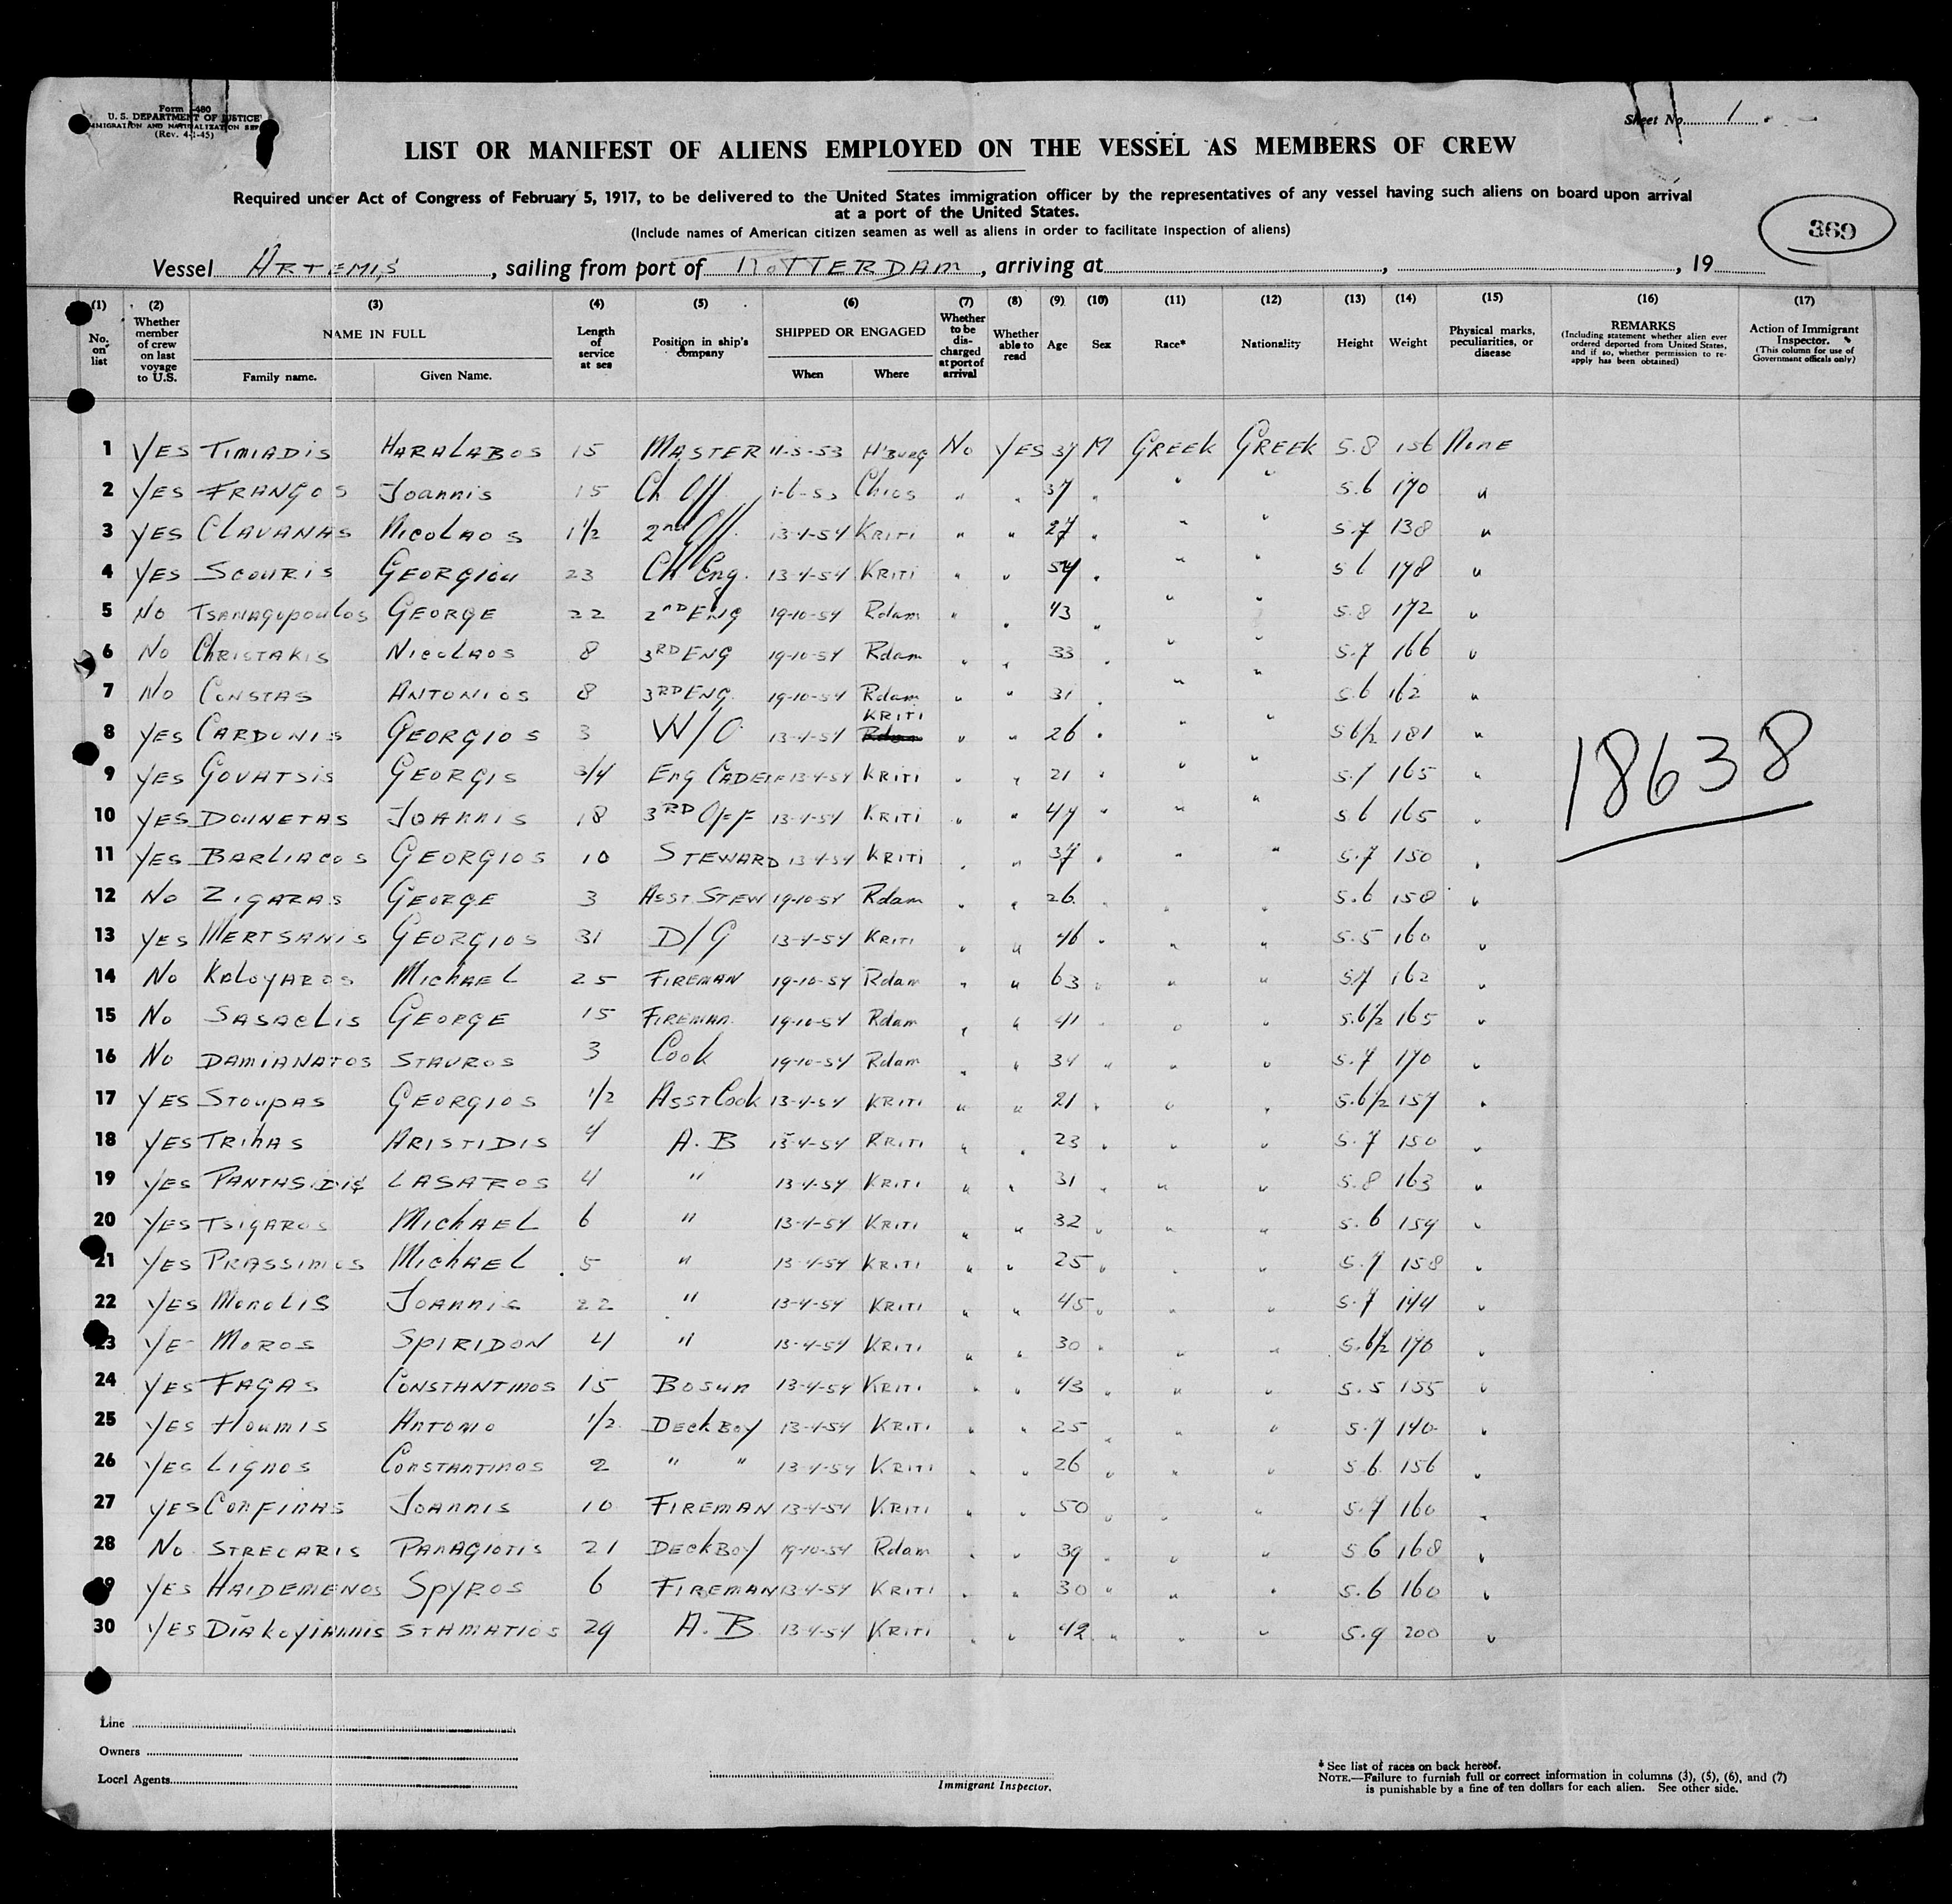 Form I-480
U. S. DEPARTMENT OF JUSTICE
IMMIGRATION AND NATURALIZATION SER
(Rev. 4-1-45)
Sheet No. 1
LIST OR MANIFEST OF ALIENS EMPLOYED ON THE VESSEL AS MEMBERS OF CREW
Required under Act of Congress of February 5, 1917, to be delivered to the United States immigration officer by the representatives of any vessel having such aliens on board upon arrival
at a port of the United States.
(Include names of American citizen seamen as well as aliens in order to facilitate inspection of aliens)
369
Vessel ARTEMIS, sailing from port of ROTTERDAM, arriving at , , 19
(1) No. on list (2) Whether member of crew on last voyage to U.S. (3) NAME IN FULL Family name. Given Name. (4) Length of service at sea (5) Position in ship's company (6) SHIPPED OR ENGAGED When Where (7) Whether to be discharged at port of arrival (8) Whether able to read (9) Age (10) Sex (11) Race* (12) Nationality (13) Height (14) Weight (15) Physical marks, peculiarities, or disease (16) REMARKS (Including statement whether alien ever ordered deported from United States, and if so, whether permission to re-apply has been obtained) (17) Action of Immigrant Inspector. (This column for use of Government officials only)
1 YES TIMIADIS HARALABOS 15 MASTER 11-5-53 H'BURG No YES 37 M GREEK GREEK 5.8 156 NONE
2 YES FRANGOS Joannis 15 Ch Off. 1-6-53 Chios " " 37 " " " 5.6 170 "
3 YES CLAVANAS NICOLAOS 1 1/2 2nd Off. 13-4-54 KRITI " " 27 " " " 5.7 138 "
4 YES SCOURIS GEORGIOU 23 Ch Eng. 13-4-54 KRITI " " 54 " " " 5 6 178 "
5 No TSANAGOPOULOS GEORGE 22 2ND ENG 19-10-54 Rdam " " 43 " " " 5.8 172 "
6 No CHRISTAKIS NICOLAOS 8 3RD ENG 19-10-54 Rdam " " 33 " " " 5.7 166 "
7 No CONSTAS ANTONIOS 8 3RD ENG. 19-10-54 Rdam " " 31 " " " 5.6 162 "
8 YES CARDONIS GEORGIOS 3 W/O 13-4-54 KRITI " " 26 " " " 5 6 1/2 181 "
9 YES GOVATSIS GEORGIS 3/4 ENG CADET 13-4-54 KRITI " 21 " " " 5.7 165 "
10 YES DOUNETAS JOANNIS 18 3RD OFF 13-4-54 KRITI " " 47 " " " 5 6 165 "
11 YES BARLIACOS GEORGIOS 10 STEWARD 13-4-54 KRITI " " 37 " " " 5.7 150 "
12 No ZIGARAS GEORGE 3 ASST. STEW 19-10-54 Rdam " " 26 " " " 5.6 158 "
13 YES MERTSANIS GEORGIOS 31 D/G 13-4-54 KRITI " " 46 " " " 5.5 160 "
14 No KALOYAROS MICHAEL 25 FIREMAN 19-10-54 Rdam " " 63 " " " 5.7 162 "
15 No SASAELIS GEORGE 15 FIREMAN 19-10-54 Rdam " " 41 " " " 5.6 1/2 165 "
16 No DAMIANATOS STAVROS 3 Cook 19-10-54 Rdam " " 34 " " " 5.7 170 "
17 YES STOUPAS GEORGIOS 1/2 ASST Cook 13-4-54 KRITI " " 21 " " " 5.6 1/2 157 "
18 YES TRIHAS ARISTIDIS 4 A.B 13-4-54 KRITI " " 23 " " " 5.7 150 "
19 YES PANTASIDIS LASAROS 4 " 13-4-54 KRITI " " 31 " " " 5.8 163 "
20 YES TSIGAROS MICHAEL 6 " 13-4-54 KRITI " " 32 " " " 5.6 159 "
21 YES PRASSINOS MICHAEL 5 " 13-4-54 KRITI " " 25 " " " 5.7 158 "
22 YES MONOLIS JOANNIS 22 " 13-4-54 KRITI " " 45 " " " 5.7 144 "
23 YE MOROS SPIRIDON 4 " 13-4-54 KRITI " " 30 " " " 5.6 1/2 170 "
24 YES FAGAS CONSTANTINOS 15 BOSUN 13-4-54 KRITI " " 43 " " " 5.5 155 "
25 YES HOUMIS ANTONIO 1/2 DECK BOY 13-4-54 KRITI " " 25 " " " 5.7 140 "
26 YES LIGNOS CONSTANTINOS 2 " " 13-4-54 KRITI " " 26 " " " 5.6 156 "
27 YES CONFINAS JOANNIS 10 FIREMAN 13-4-54 KRITI " " 50 " " " 5.7 160 "
28 No STRECARIS PANAGIOTIS 21 DECK BOY 19-10-54 Rdam " " 39 " " " 5 6 168 "
29 YES HAIDEMENOS SPYROS 6 FIREMAN 13-4-54 KRITI " " 30 " " " 5.6 160 "
30 YES DIAKOYIANNIS STAMATIOS 29 A.B 13-4-54 KRITI " " 42 " " " 5.9 200 "
18638
Line
Owners
Local Agents
Immigrant Inspector.
* See list of races on back hereof.
NOTE.—Failure to furnish full or correct information in columns (3), (5), (6), and (7)
is punishable by a fine of ten dollars for each alien. See other side.